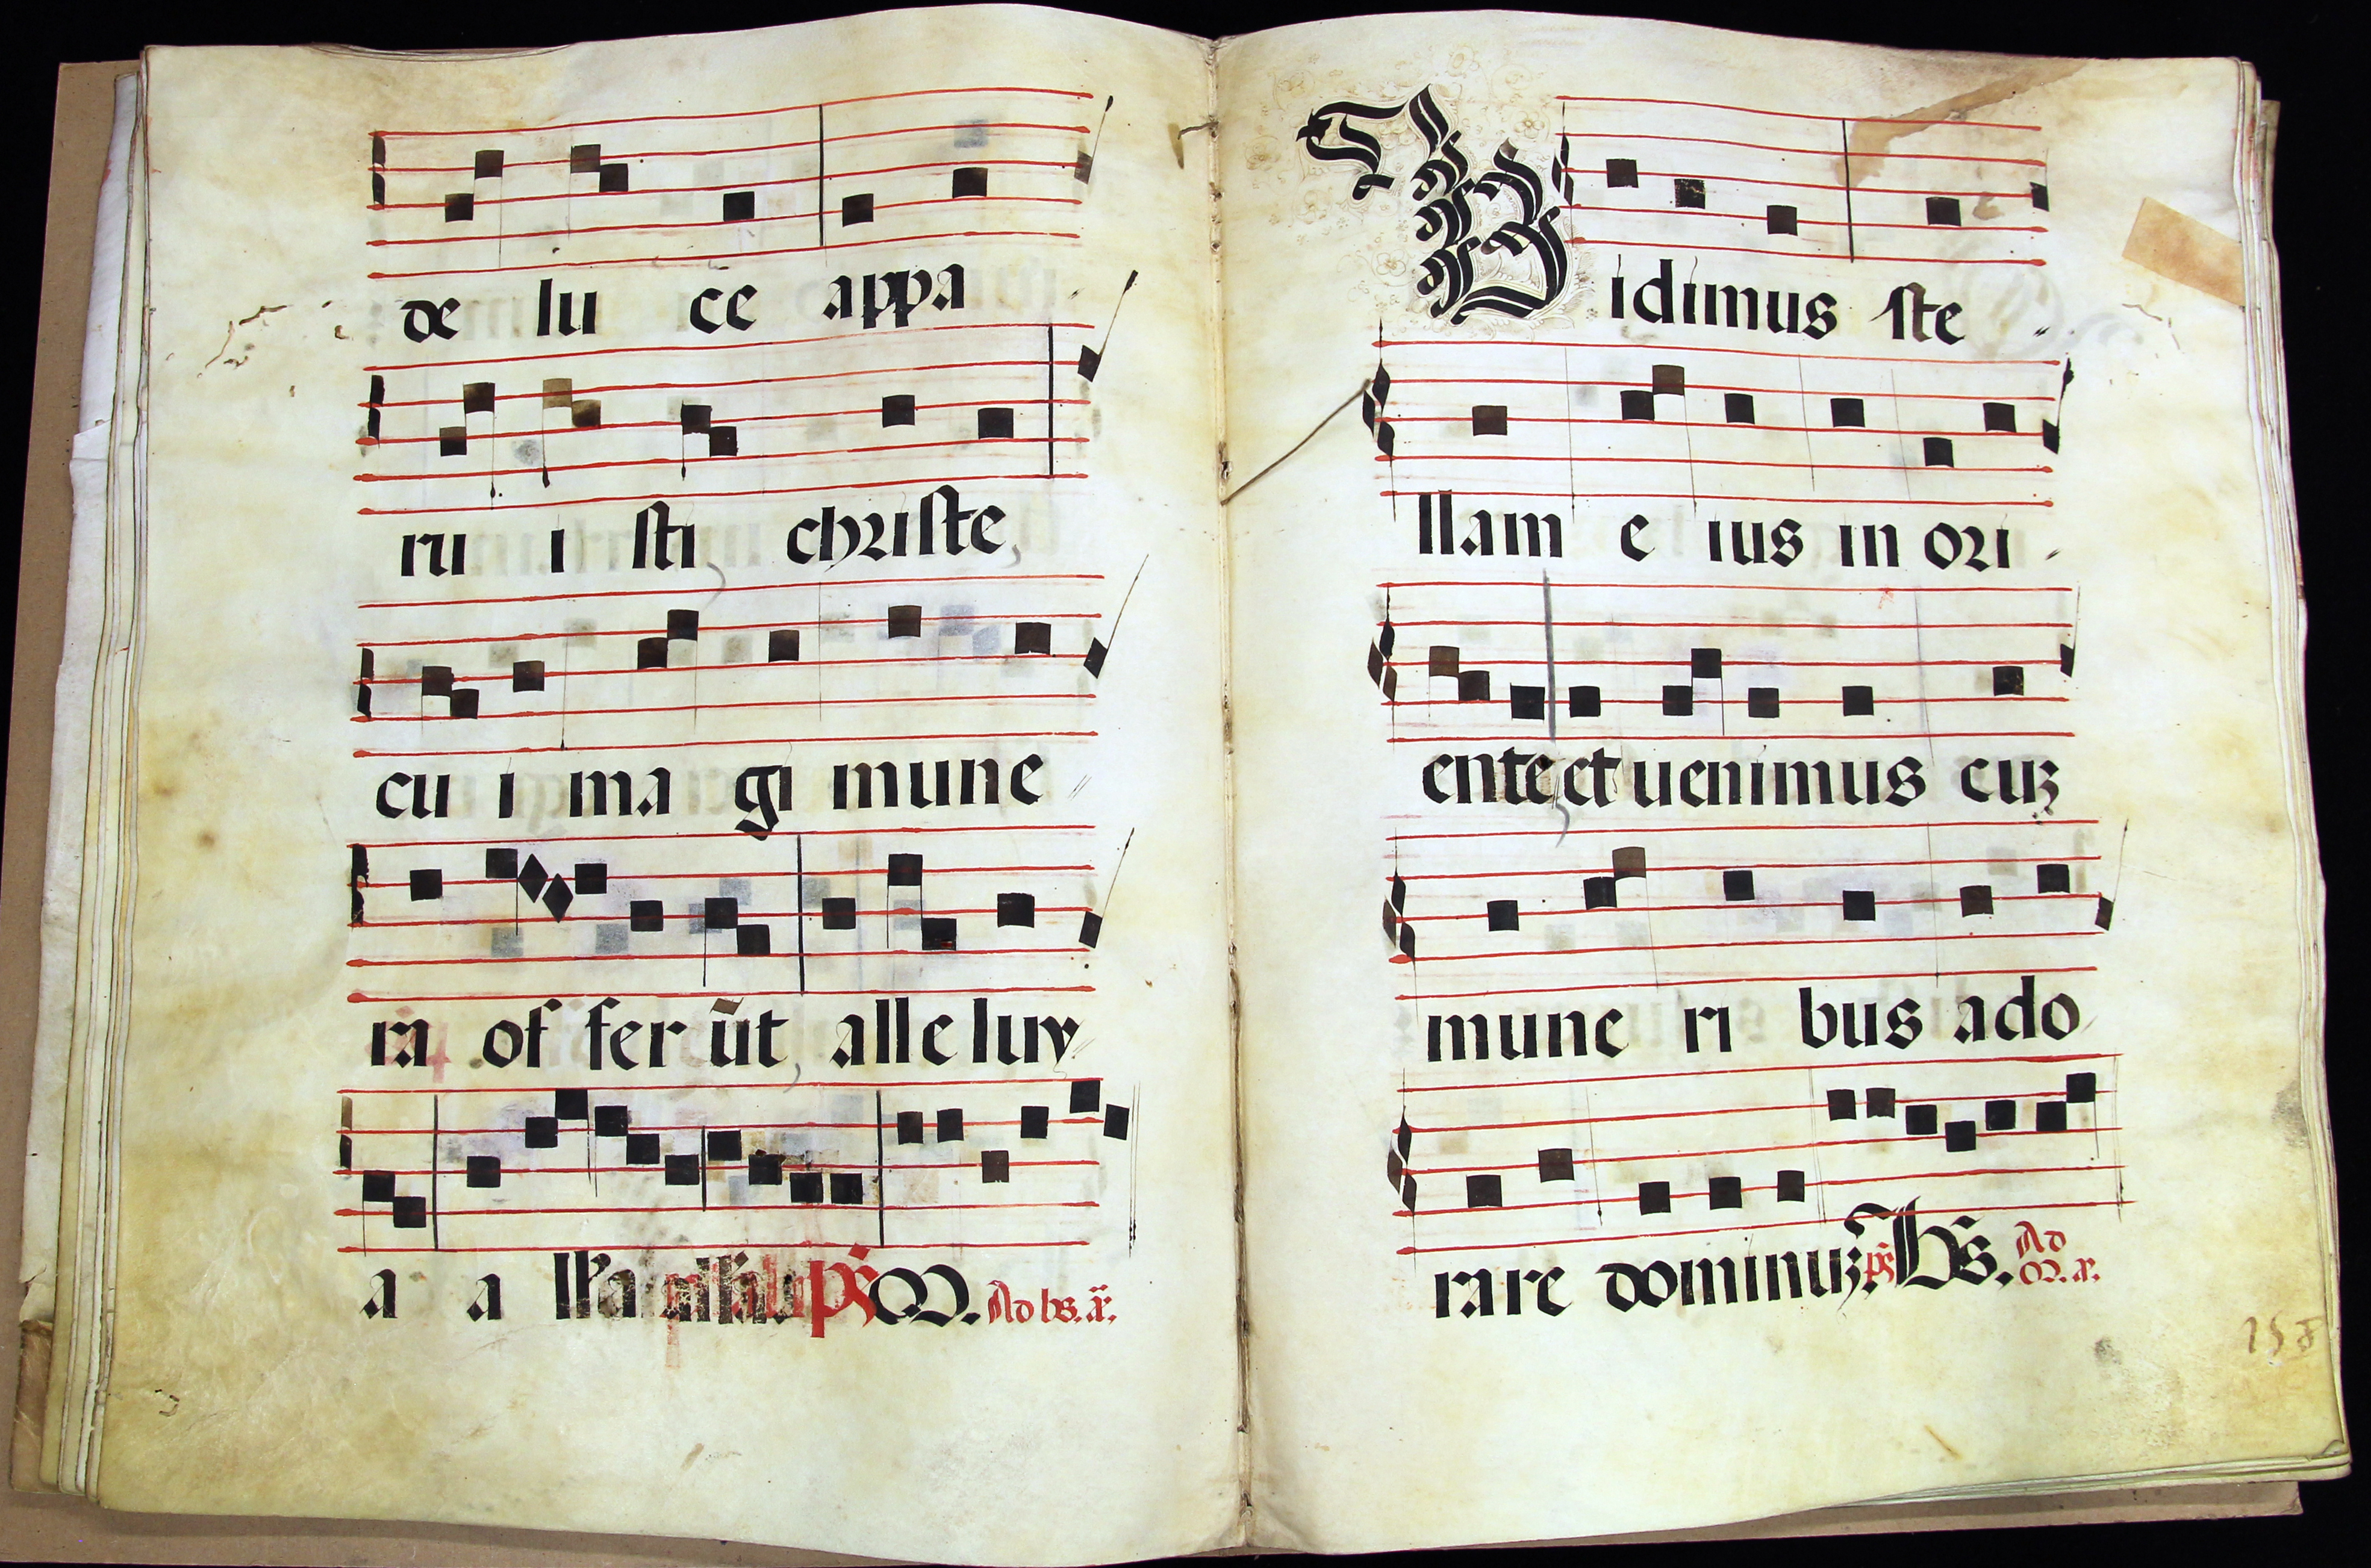 de lu ce appa
ru i sti christe
cu i ma gi mune
ra of fer ūt alle luy
a a
ps Ad bs. a.
Vidimus ste
llam e ius in ori
ente et uenimus cuz
mune ri bus ado
rare dominuz. ps Bs. Ad
158